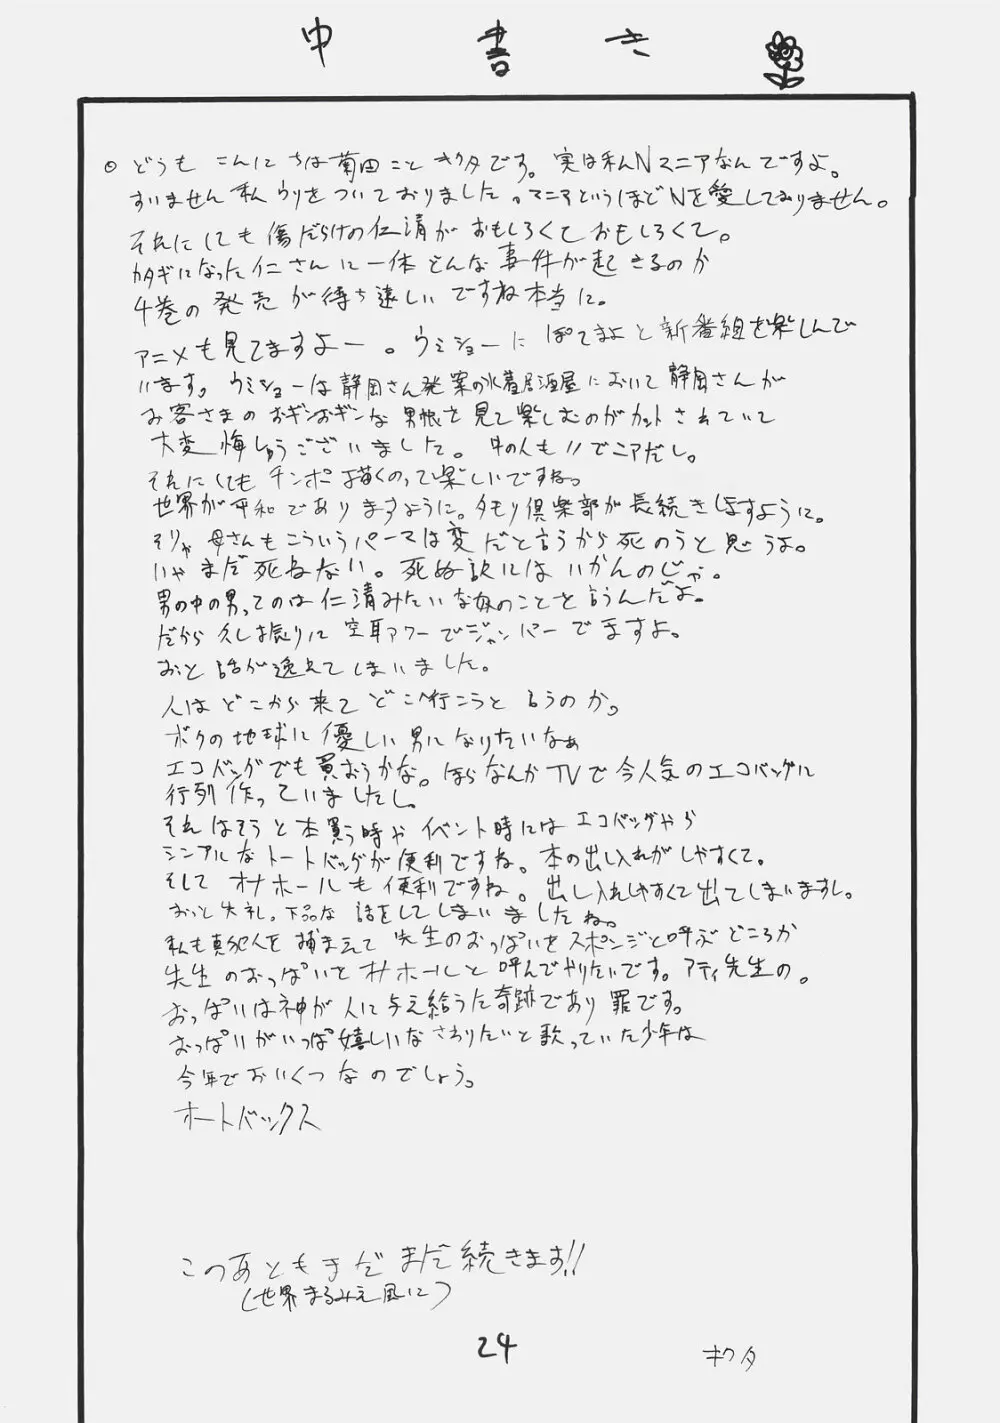 中書き
○ どうも こんにちは菊田こと キクタです。実は私Nマニアなんですよ。
すいません 私 ウソをついておりました。マニアというほどNを愛しておりません。
それにしても 傷だらけの仁清が おもしろくて おもしろくて。
カタギになった 仁さんに 一体 どんな 事件が起きるのか
4巻の 発売 が待ち遠しい ですね本当に。
アニメも見てますよー。ウミショーに ぽてまよと新番組を楽しんで
います。ウミショーは静岡さん発案の水着居酒屋において静岡さんが
お客さまのおギンおギンな 男根を見て楽しむのがカットされていて
大変 悔しゅうございました。中の人も
それにしても チンポ描くのって楽しいですね。
世界が平和でありますように。タモリ倶楽部が長続きしますように。
そりゃ 母さんもこういうパーマは変だと言うから死のうと思うよ。
いやまだ死ねない。死ぬ訳にはいかんのじゃ。
男の中の男ってのは仁清みたいな奴のことを言うんだよ。
だから久し振りに空耳アワーでジャンパーでますよ。
おっと話が逸れてしまいました。
人は どこから来て どこへ行こうと 言うのか。
ボクの地球に優しい男になりたいなぁ
エコバッグでも買おうかな。ほらなんかTVで今人気のエコバッグに
行列作っていましたし。
それはそうと本買う時や イベント時にはエコバッグやら
シンプルなトートバッグが便利ですね。本の出し入れがしやすくて。
そして オナホールも便利ですね。出し入れしやすくて出てしまいますし。
おっと失礼。下品な 話をしてしまいましたね。
私も真犯人を 捕まえて 先生のおっぱいをスポンジと呼ぶ どころか
先生のおっぱいをオナホールと呼んでやりたいです。アティ先生の。
おっぱいは神が人に与え給うた奇跡であり罪です。
おっぱいがいっぱ嬉しいなさわりたいと歌っていた少年は
今年でおいくつなのでしょう。
オートバックス
このあともまだまだ続きます!!
(世界まるみえ風に)
24
キクタ